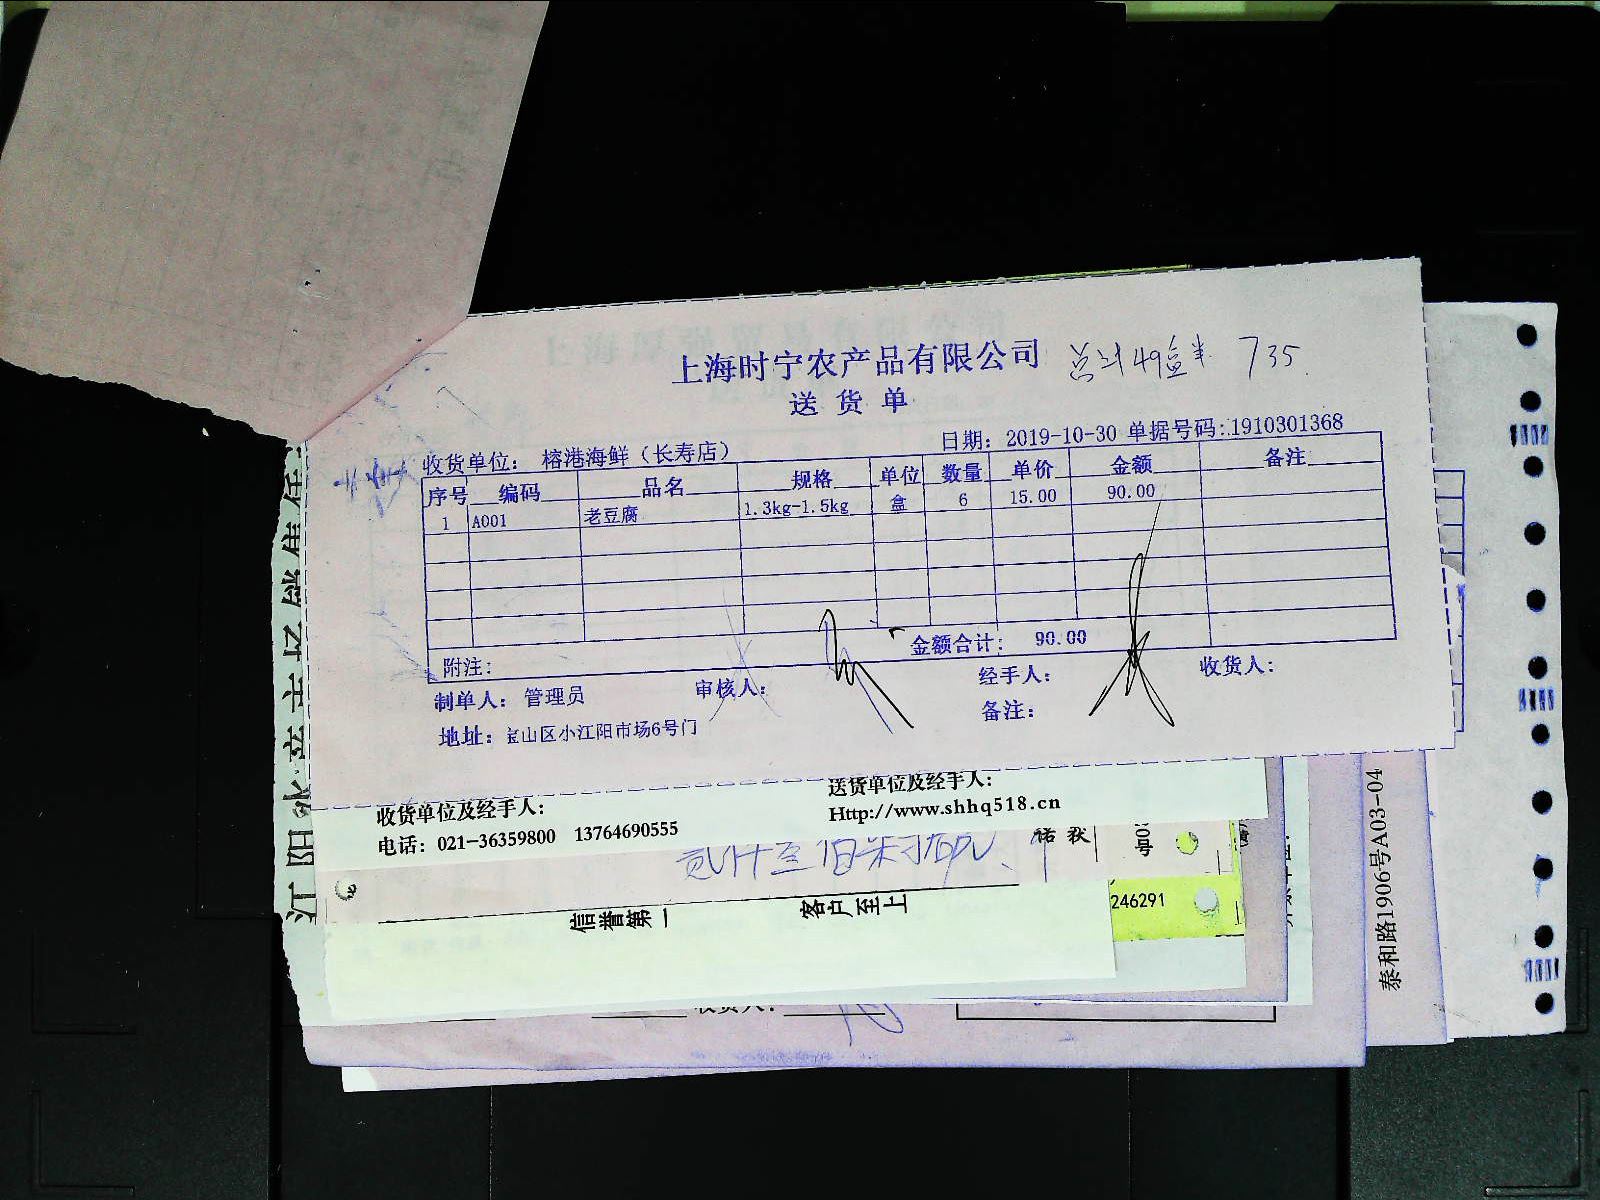 上海时宁农产品有限公司 总计49盒半 735
送货单
收货单位: 榕港海鲜(长寿店) 日期: 2019-10-30 单据号码:1910301368
序号 编码 品名 规格 单位 数量 单价 金额 备注
1 A001 老豆腐 1.3kg-1.5kg 盒 6 15.00 90.00
金额合计: 90.00
附注:
制单人: 管理员 审核人: 经手人: 收货人:
地址: 宝山区小江阳市场6号门 备注:
收货单位及经手人: 送货单位及经手人:
电话: 021-36359800 13764690555 Http://www.shhq518.cn
信誉第一 客户至上
246291
收货人:
泰和路1906号A03-04
江阳水产市场